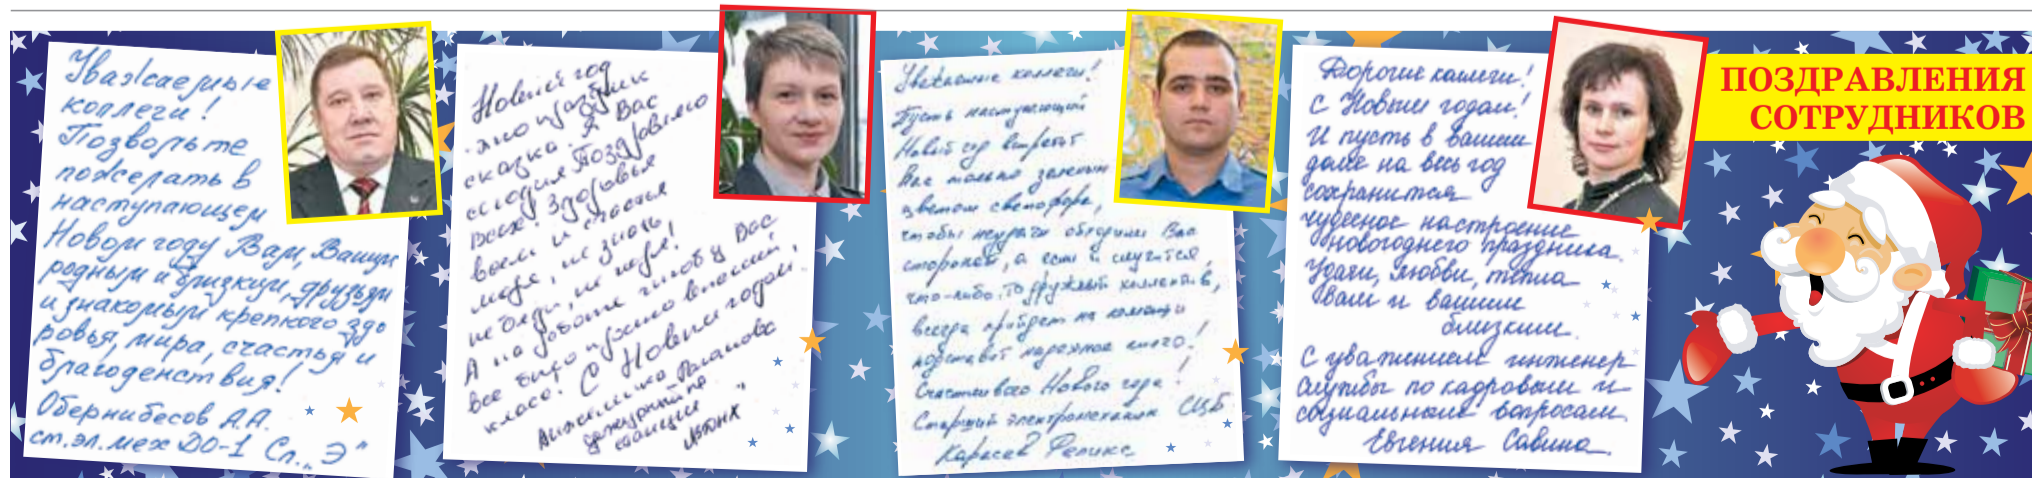 Уважаемые
коллеги!
Позвольте
пожелать в
наступающем
Новом году Вам, Вашим
родным и близким, друзьям
и знакомым крепкого здо
ровья, мира, счастья и
благоденствия!
Обернибесов А.А.
ст.эл.мех ДО-1 Сл. „Э"
Новый год
- это праздник
сказка. Я Вас
сегодня Поздравляю
всех! Здоровья
всем и счастья
море, не знать
ни беды, ни горя!
А на работе чтоб у Вас
все было просто высший
класс! С Новым годом.
Анжелика
дежурный по
станции
Уважаемые коллеги!
Пусть наступающий
Новый год встретит
Вас только зеленым
цветом светофора,
чтобы неудачи обходили Вас
стороной, а если и случится
что-либо, то дружный коллектив,
всегда прийдет на помощь и
подставит надежное плечо!
Счастливого Нового года!
Старший электромеханик СЦБ
Карасев Феликс
Дорогие коллеги!
С Новым годом!
И пусть в вашем
доме на весь год
сохранится
чудесное настроение
новогоднего праздника.
Удачи, любви, тепла
Вам и вашим
близким.
С уважением инженер
службы по кадровым и
социальным вопросам
Евгения Савина
ПОЗДРАВЛЕНИЯ
СОТРУДНИКОВ